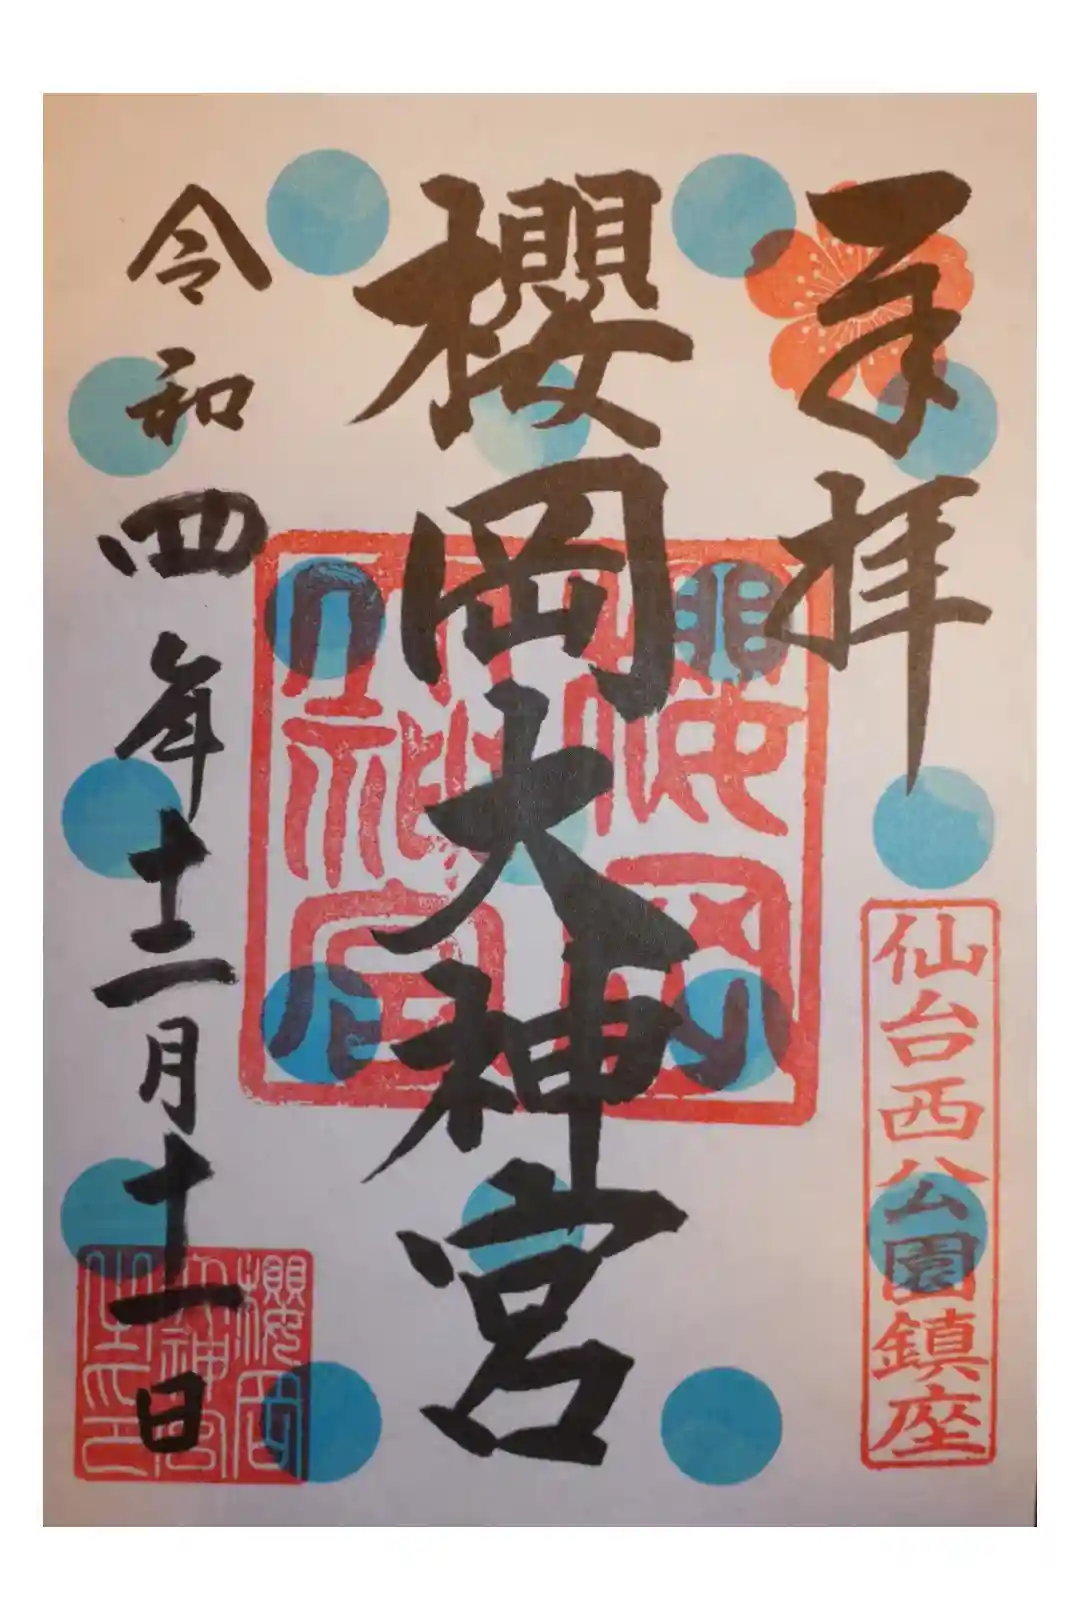 奉拝
仙台西公園鎮座
櫻岡大神宮
櫻岡
大神宮
令和四年十二月十一日
櫻岡
大神宮
之印